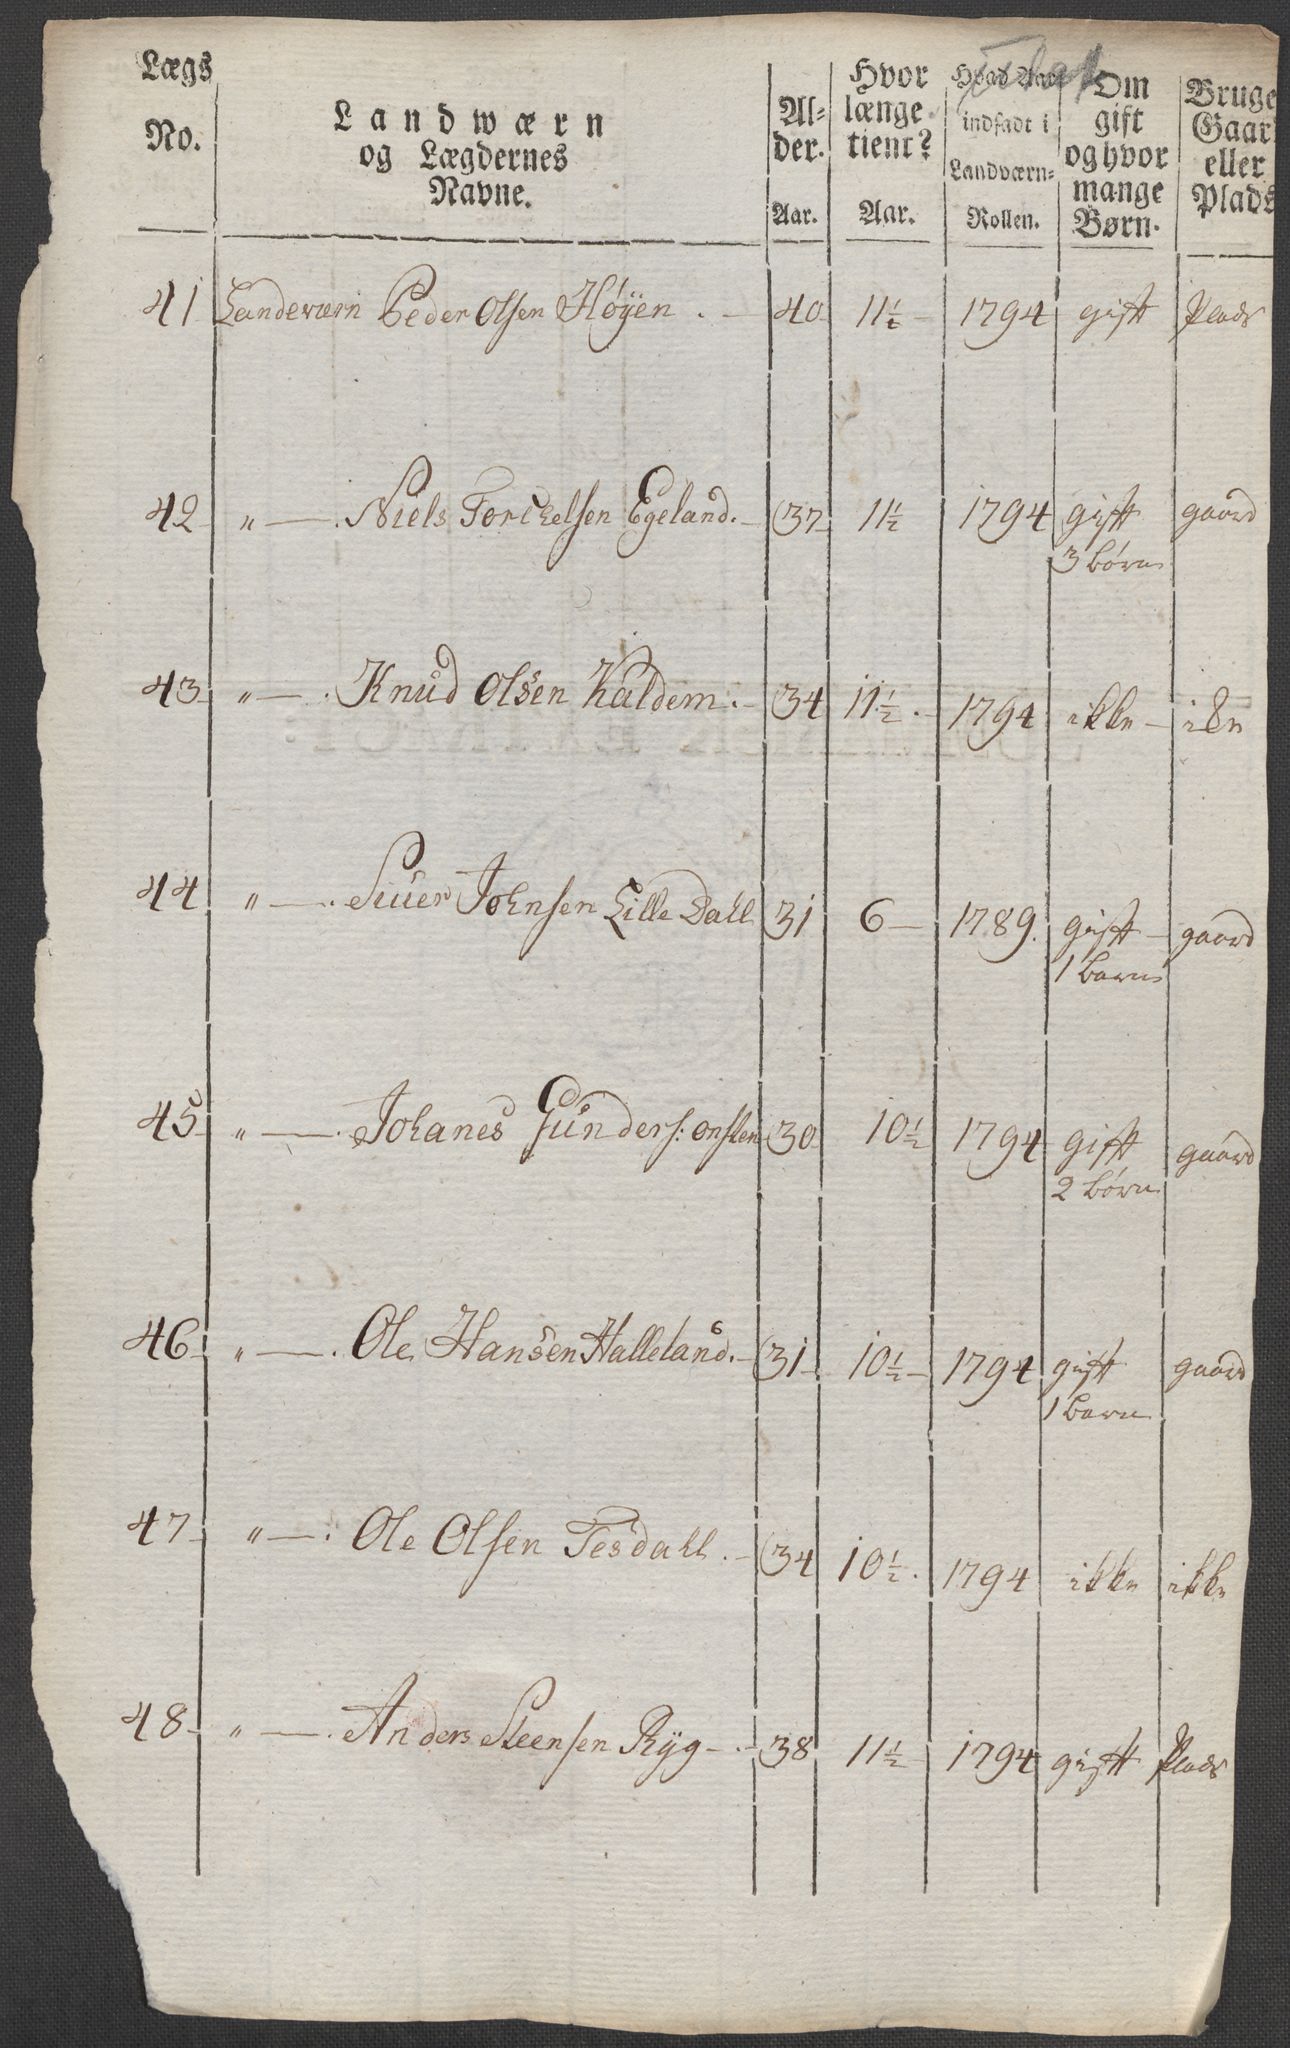 Lægs No. | Landwærn og Lægdernes Navne. | Al=der. Aar. | Hvor længe tient? Aar. | Hvad Aar indsadt i Landværn=Rollen. | Om gift og hvor mange Børn. | Bruge Gaar eller Plads
41 Landeværn Peder Olsen Høÿen . — 40 11½ — 1794 gift Plads
42 " — . Niels Torckelsen Egeland. — 37 11½ 1794 gift gaard
3 børn
43 " — . Knud Olsen Kaldem. — 34 11½ . — 1794 ikke — ike
44 " — . Siuer Johnsen Lille Dahl 31 6 — 1789. gift — gaard
1 barn
45 " — . Johanes Gunders: onsten 30 10½ 1794 gift gaard
2 børn
46 " — . Ole Hansen Halleland. — 31 10½ — 1794 gift gaard
1 barn
47 " — : Ole Olsen Tesdahl . — 34 10½ . 1794 ikke ikke
48 " — . Anders Steensen Rÿg — . 38 11½ — 1794 gift Plads